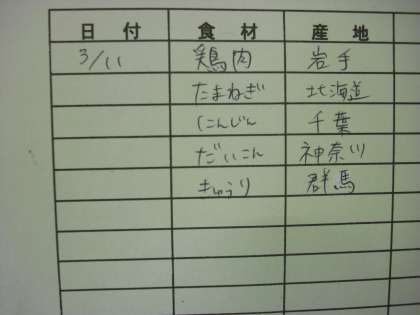 日付 食材 産地
3/11 鶏肉 岩手
たまねぎ 北海道
にんじん 千葉
だいこん 神奈川
きゅうり 群馬